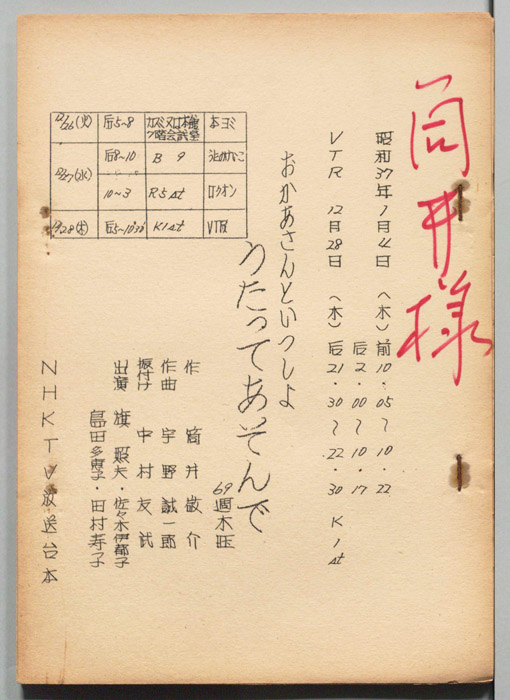 筒井様
昭和37年1月4日（木）前10・05〜10・22
后2・00〜10・17
VTR 12月28日（木）后21・30〜22・30 K1st
おかあさんといっしょ
うたってあそんで
69週木旺
作 筒井敬介
作曲 宇野誠一郎
振付け 中村友武
出演 旗照夫・佐々木伊都子
島田多恵子・田村寿子
NHKTV放送台本
12/26(火) 后5〜8 本ヨミ
12/27(水) 后8〜10 B 9
10〜3 R5st ロクオン
12/28(木) 后5〜10 30 K1st VTR